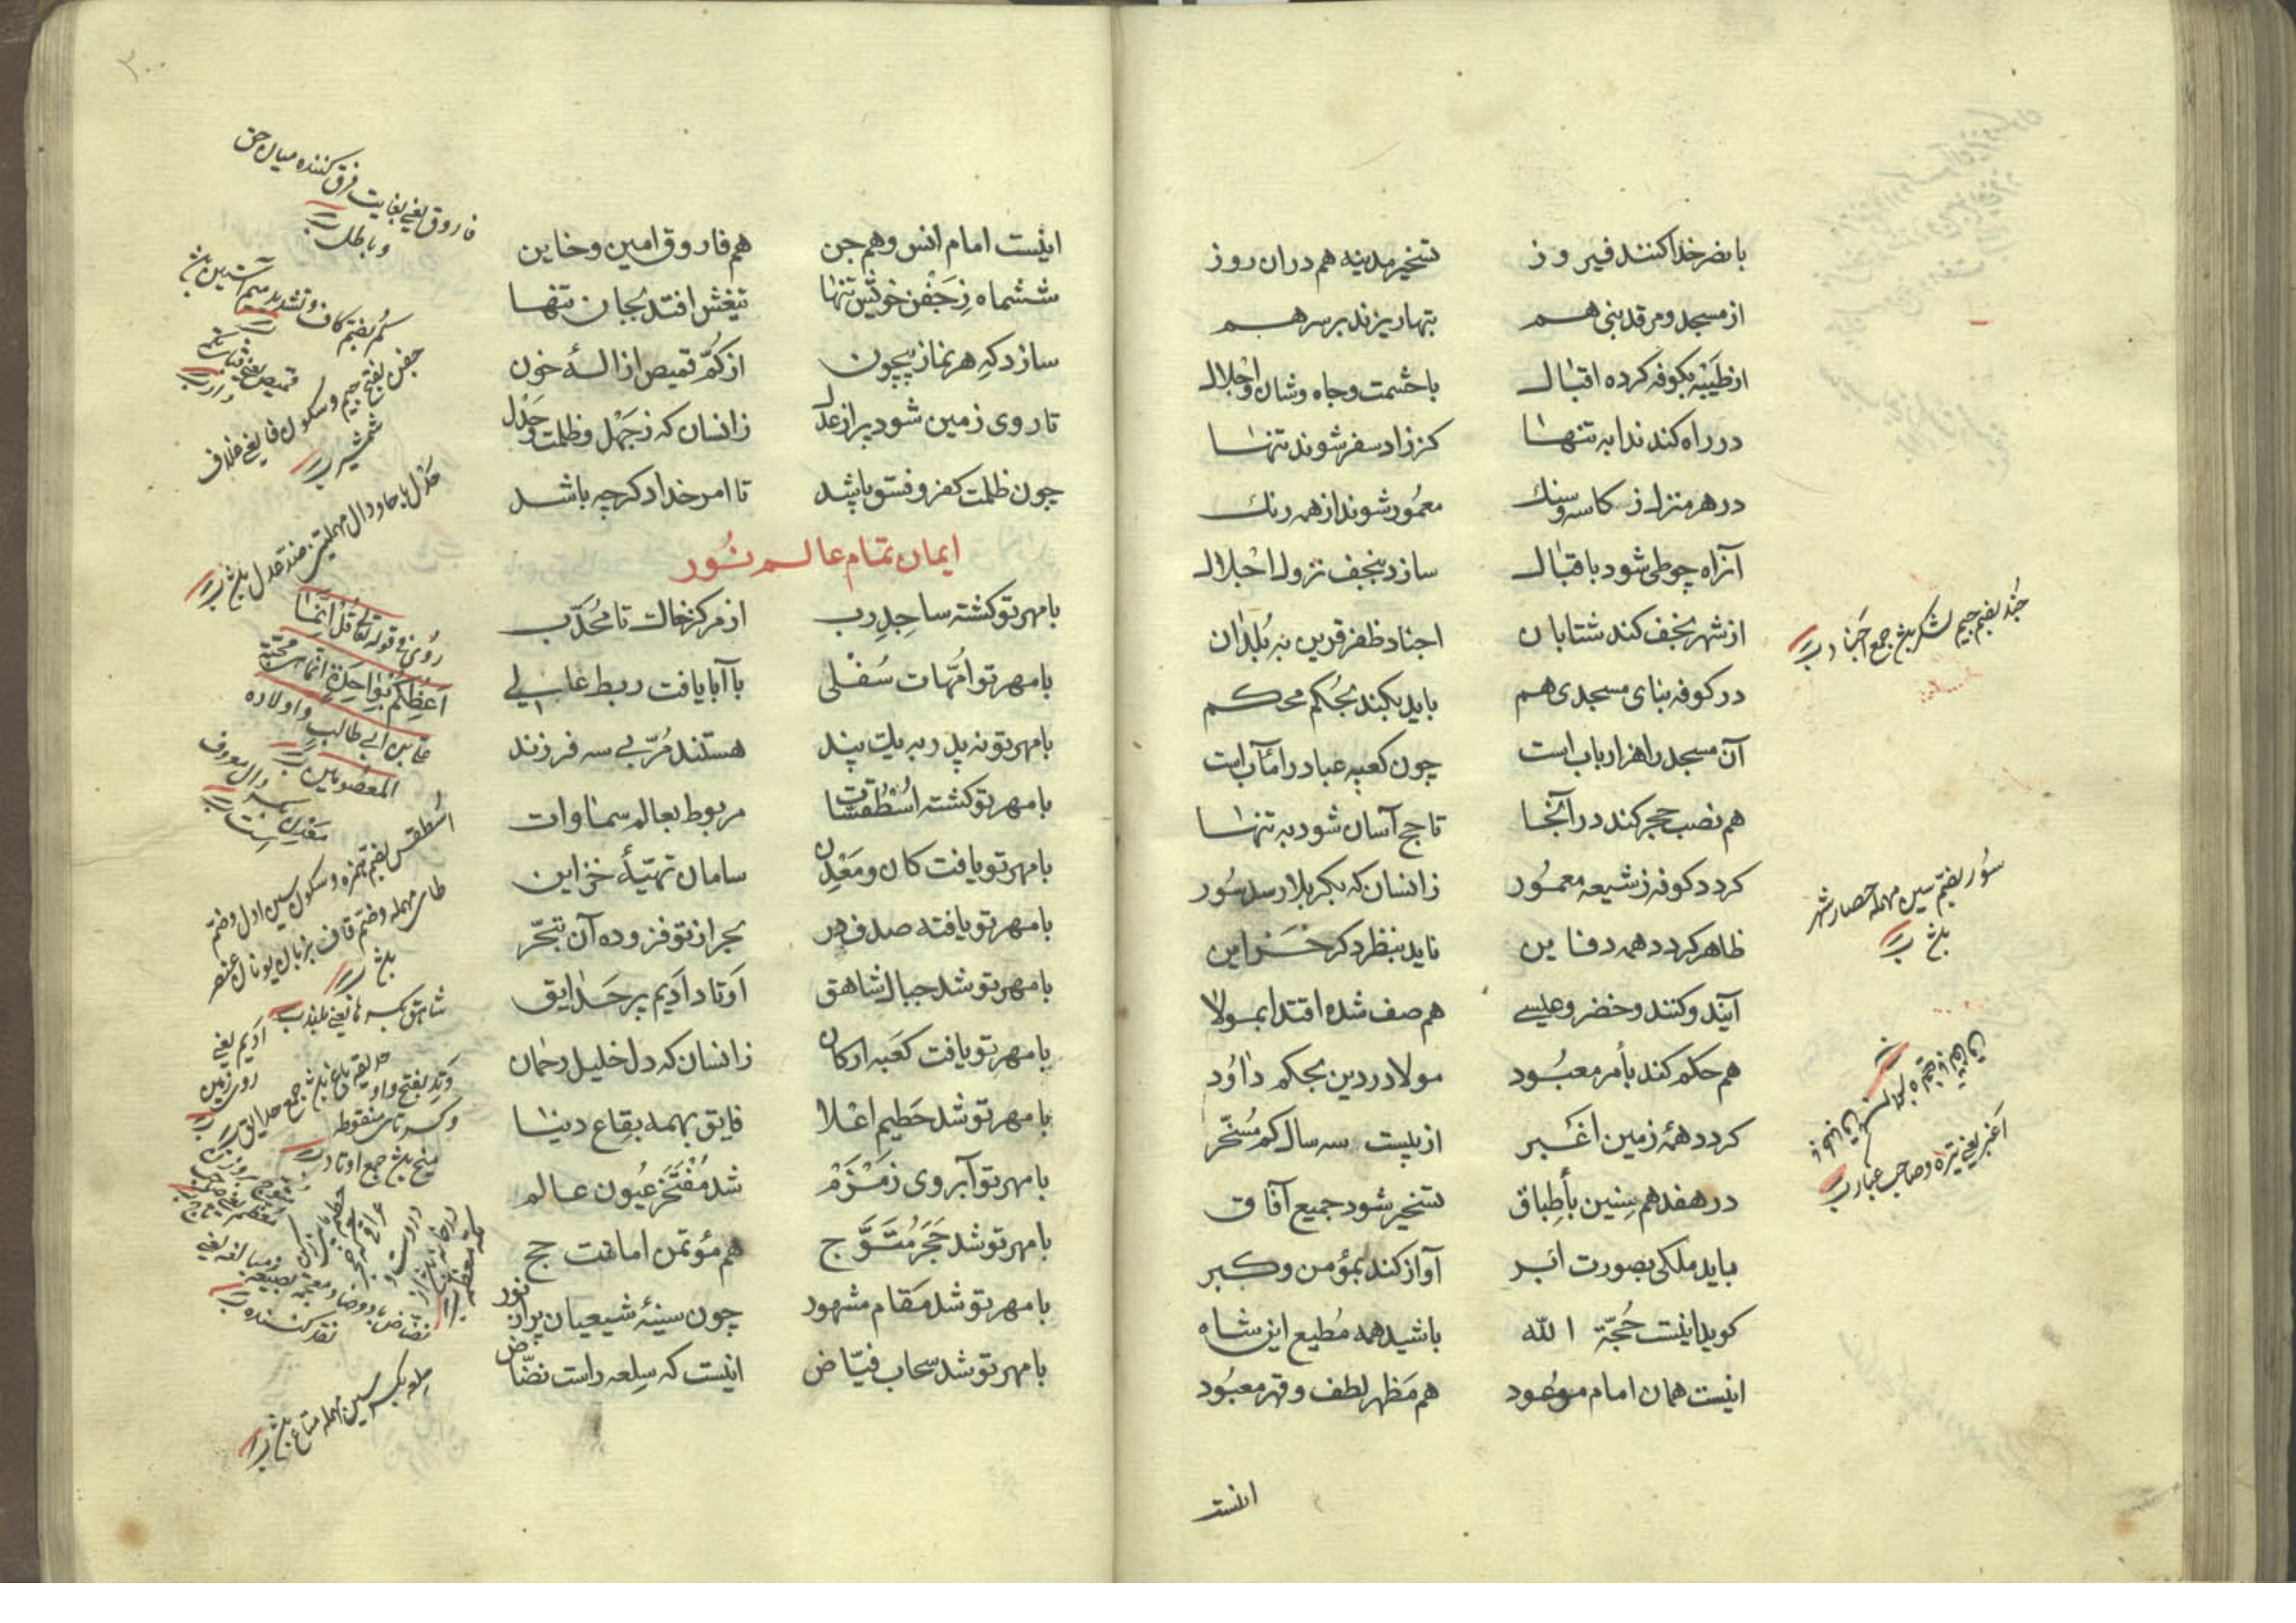 با نصر خدا کنند فیروز تسخیر مدینه هم دران روز
از مسجد و مرقد نبی هم بتها ریزند بر سر هم
از طَیْبَه بکوفه کرده اقبال باحشمت و جاه و شان و اجلال
در راه کند ندا به تنها کز زاد سفر شوند تنها
در هر منزل ز کاسه و سنك معمور شوند از همه رنك
آنراه چو طی شود باقبال سازد بنجف نزول اجلال
از شهر نجف کند شتابان اجناد ظفر قرین به بُلدان
در کوفه بنای مسجدی هم باید بکند بحُکم محکم
آن مسجد را هزار باب است چون کعبه عباد را مآب است
هم نصب حجر کند در آنجا تا حج آسان شود به تنها
کردد کوفه ز شیعه معمُور زانسان که بکربلا رسد سُور
ظاهر کردد همه دفاین ناید بنظر دکر خزاین
آیند و کنند و خضر و عیسی هم صف شده اقتدا بمولا
هم حکم کند بأمر معبُود مولا در دین بحکم داوُد
کردد همهٔ زمین اغبر از بیست سه سال کم مُسَخّر
در هفدهم سِنین بأطِباق تسخیر شود جمیع آفاق
باید ملکی بصورت ابر آواز کند بمؤمن و کبر
کوید اینست حُجّة الله باشید همه مُطیع این شاه
اینست همان امام موعُود هم مَظهر لطف و قهر معبُود
اینست
جُند بضم جیم لشکر جمع اجناد
سُور بضم سین مهمله حصار شهر
اغبر یعنی تیره و صاحب غبار
٣٠٠
اینست امام انس و هم جن هم فاروق امین و خاین
ششماه زِ جَفْن خویش تنها تیغش افتد بجان تنها
سازد کهِ هر نماز بیچون از کُمّ قمیص ازالهٔ خون
تا روی زمین شود پر از عدل زانسان که ز جَهْل و ظلمت و حَدْل
چون ظلمت کفر و فسق باشد تا امر خدا دکر چه باشد
ایمان تمام عالم نُور
بامهر تو کشته ساجِدِ رب از مرکز خاك تا مُحَدّب
بامهر تو اُمّهات سُفْلی با آبا یافت ربط عالی
بامهر تو نه پدر به یك پند هستند مُربّی سه فرزند
بامهر تو کشته اُسْطُقسّات مربوط بعالم سماوات
بامهر تو یافت کان و مَعْدِن سامان تهیّهٔ خزاین
بامهر تو یافته صدف در بحر از تو فزوده آن تبحّر
بامهر تو شد جبال شاهق اَوتاد اَدیم پر حدایق
بامهر تو یافت کعَبه ارکان زانسان که دل خلیل رحمان
بامهر تو شد حَطیم اعْلا فایق بهمه بِقاع دنیا
بامهر تو آبروی زَمْزَمْ شد مُفْتَخَر عُیُون عالم
بامهر تو شد حَجَر مُتَوَّج هم مؤتمن امانت حج
بامهر تو شد مَقام مشهور چون سینهٔ شیعیان پر از نور
بامهر تو شد سحاب فیّاض اینست که سِلعه راست نضّاض
فاروق یعنی بغایت فرق کننده میان حق
و باطل
کُم بضم کاف و تشدید میم آستین
جفن بفتح جیم و سکون فا یعنی غلاف
شمشیر
حَدْل با حا و دال مهملتین ضد عدل
رُوِیَ فی قوله تعالی قُل اِنَّما
اَعِظُکُم بِواحِدَة
علی بن ابی طالب و اولاده
المعصومین
اُسْطُقس بضم همزه و سکون سین اول و ضم
طای مهمله و ضم قاف بزبان یونان عنصر
شاهق بکسر ها یعنی بلند
اَدیم یعنی
روی زمین
وَتِد بفتح واو
و کسر تای منقوطه
میخ جمع اوتاد
سلعه بکسر سین مهمله متاع